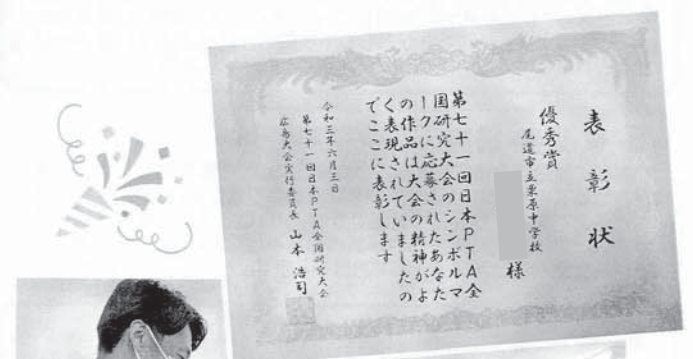 表彰状
優秀賞
尾道市立栗原中学校
様
第七十一回日本PTA全
国研究大会のシンボルマ
ークに応募されたあなた
の作品は大会の精神がよ
く表現されていましたの
でここに表彰します
令和三年六月三日
第七十一回日本PTA全国研究大会
広島大会実行委員長 山本浩司